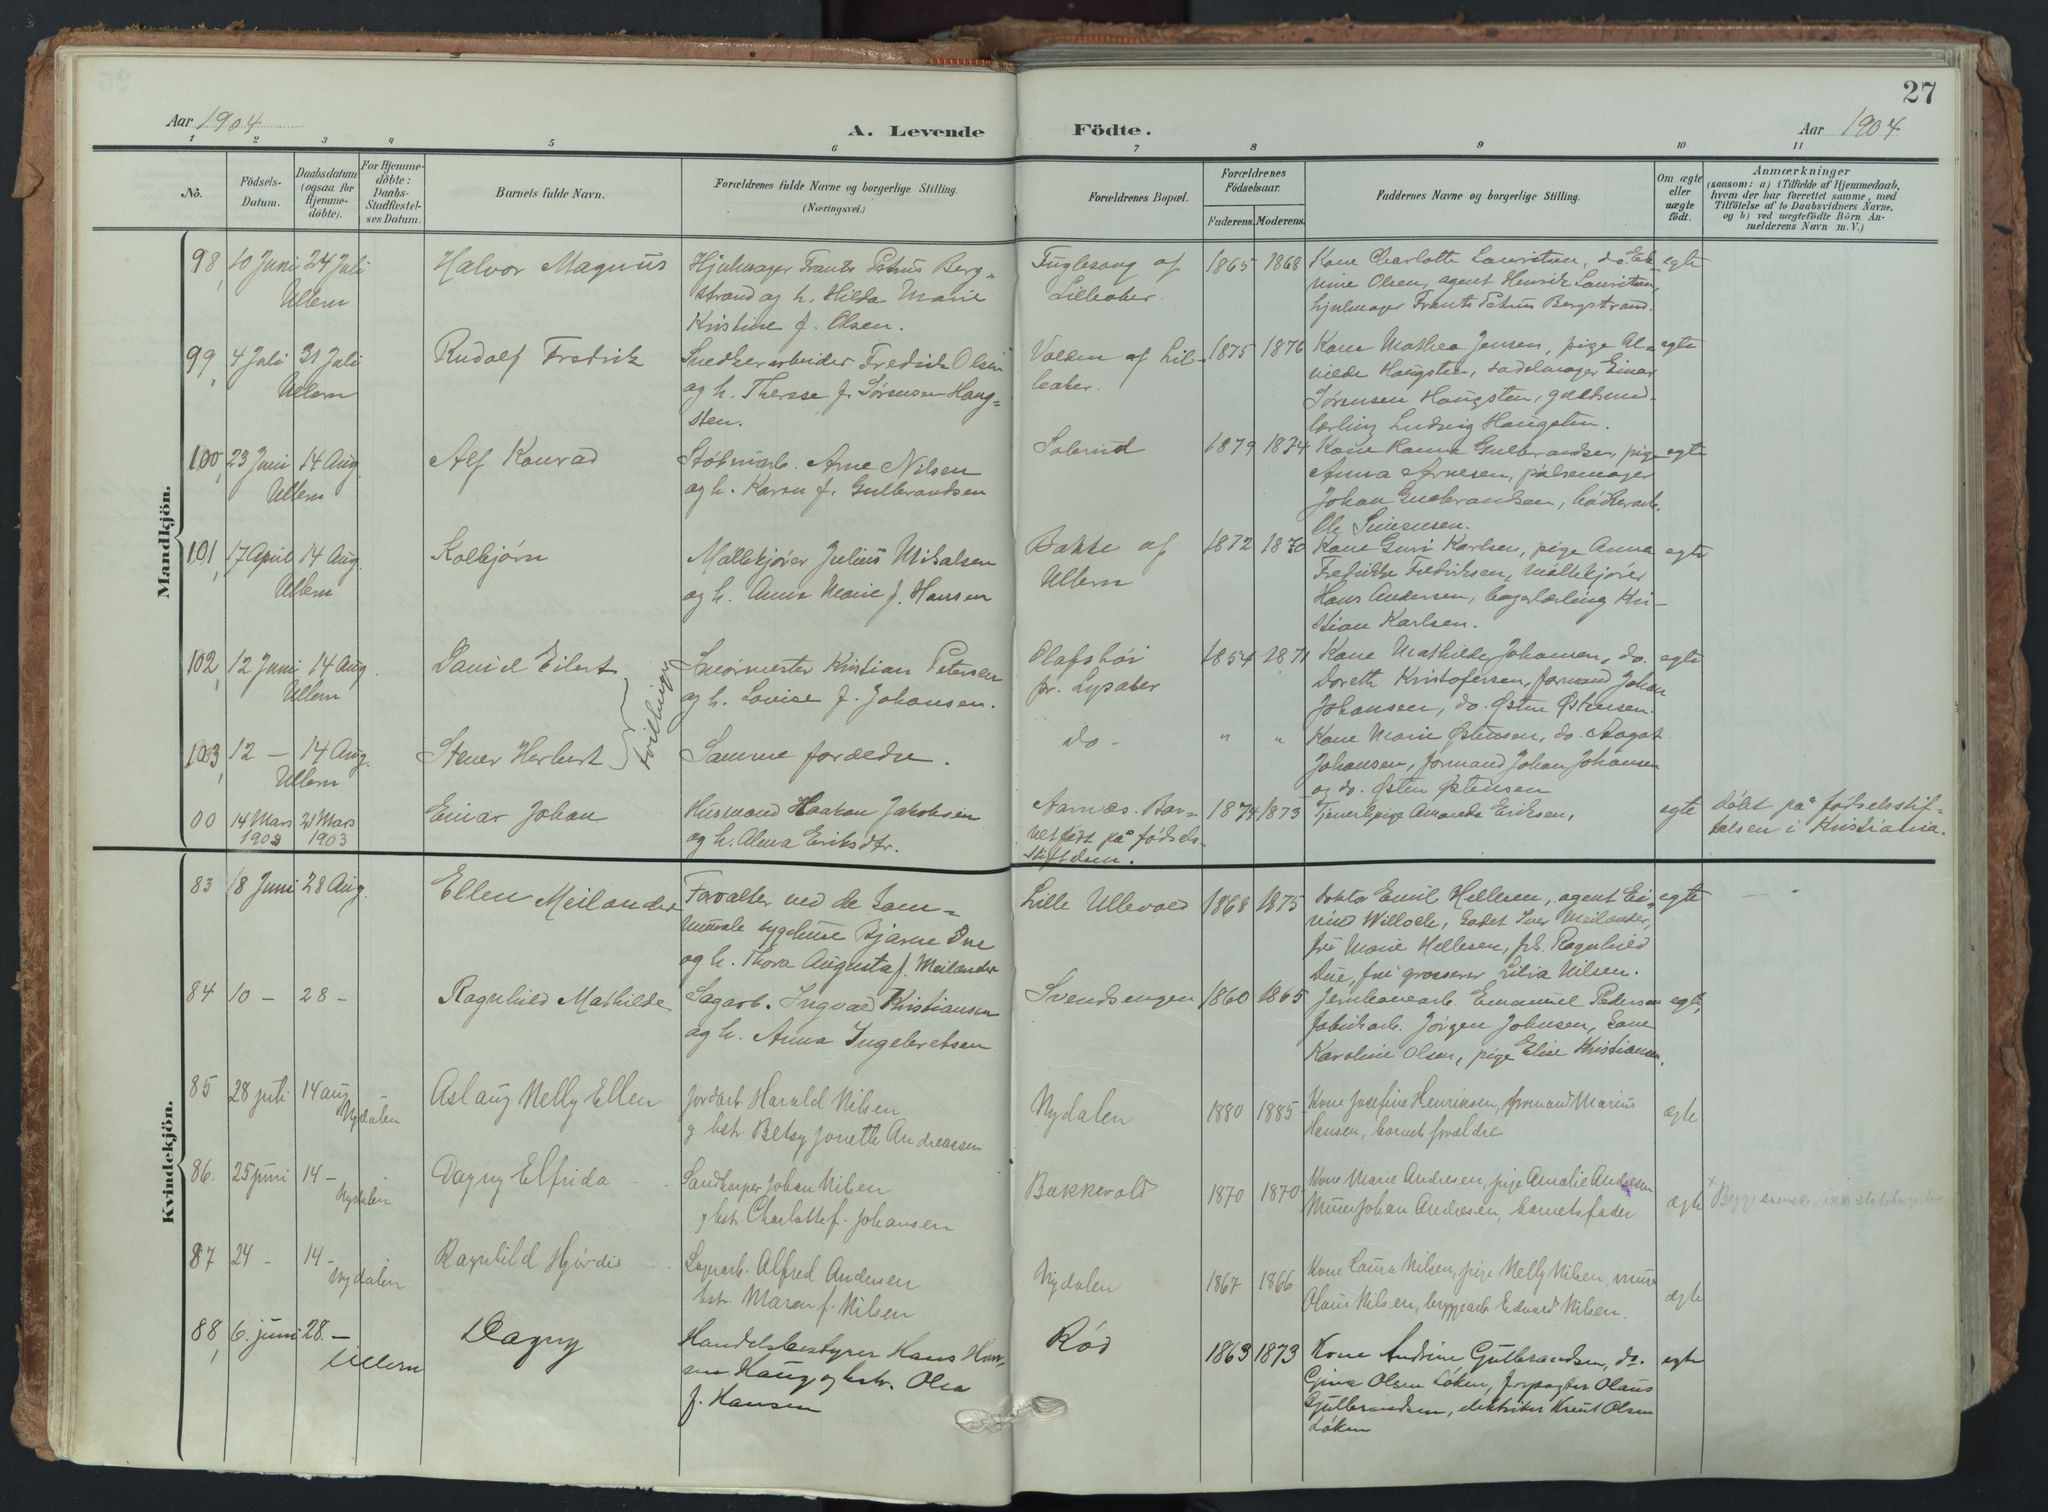 27
Aar 1904
A. Levende
Födte.
Aar 1904
1 2 3 4 5 6 7 8 9 10 11
No.
Födsels-
Datum.
Daabsdatum
(ogsaa for
Hjemme-
döbte).
For Hjemme-
döbte:
Daabs-
Stadfæstel-
ses Datum.
Barnets fulde Navn.
Forældrenes fulde Navne og borgerlige Stilling.
(Næringsvei.)
Forældrenes Bopæl.
Forældrenes
Födselsaar.
Faderens. Moderens.
Faddernes Navne og borgerlige Stilling.
Om ægte
eller
uægte
födt.
Anmærkninger
(saasom: a) i Tilfælde af Hjemmedaab,
hvem der har forrettet samme, med
Tilföielse af to Daabsvidners Navne,
og b) ved uægtefödte Börn An-
melderens Navn m. V.)
Mandkjön.
98, 10 Juni 24 Juli
Ullern
Halvor Magnus
Hjulmager Frants Petrus Berg-
strand og h. Hilda Marie
Kristine f. Olsen.
Fuglesang af
Lilleaker.
1865 1868
Kone Charlotte Lauritsen, do.
vine Olsen, agent Henrik Lauritsen,
hjulmager Frants Petrus Bergstrand.
egte
99, 4 Juli 31 Juli
Ullern
Rudolf Fredrik
Snedkerarbeider Fredrik Olsen
og h. Therese f. Sørensen Haug-
sten.
Volden af Lil-
leaker.
1875 1876
Kone Mathea Jensen, pige Al-
vilde Haugsten, sadelmager Einar
Sørensen Haugsten, guldsmed-
lærling Ludvig Haugsten.
egte
100, 23 Juni 14 Aug.
Ullern
Alf Konrad
Støberiarb. Arne Nilsen
og h. Karen f. Gulbrandsen
Solerud
1879 1874
Kone Hanna Gulbrandsen, pige
Anna Arnesen, pølsemager
Johan Gulbrandsen, bødkerarb.
Ole Simensen.
egte
101, 17 April 14 Aug.
Ullern
Kolbjørn
Melkekjører Julius Mikalsen
og h. Anna Marie f. Hansen
Bakke af
Ullern
1872 1870
Kone Guri Karlsen, pige Anna
Fredrikke Fredriksen, melkekjører
Hans Andersen, bagerlærling Kri-
stian Karlsen.
egte
102, 12 Juni 14 Aug.
Ullern
Daniel Eilert
tvillinger
Kristian Petersen
og h. Lovise f. Johansen.
Olafsbøi
pr. Lysaker
1854 1871
Kone Mathilde Johansen, do.
Doreth Kristofersen, formand Johan
Johansen, do. Østen Østensen.
egte
103, 12 — 14 Aug.
Ullern
Stener Herbert
Samme forældre.
do -
" "
Kone Marie Østensen, do. Aagot
Johansen, formand Johan Johansen
og do. Østen Østensen
00 14 Mars 21 Mars
1903 1903
Einar Johan
Husmand Haakon Jakobsen
og h. Alma Eriksdtr.
Aarnæs. Bar-
net født på fødsels-
stiftelsen.
1874 1873
Tjenerpige Amanda Eriksen,
egte
Døbt på fødselsstif-
telsen i Kristiania.
Kvindekjön.
83 18 Juni 28 Aug.
Ellen Meilænder
Forvalter ved de kom-
munale sygehuse Bjarne Due
og h. Thora Augusta f. Meilænder
Lille Ullevold
1868 1875
Doktor Emil Hellesen, agent Ei-
vind Willoch, kadet Iver Meilænder,
fru Marie Hellesen, frk. Ragnhild
Due, fru grosserer Lilia Nilsen.
egte
84 10 — 28 —
Ragnhild Mathilde
Sagarb. Ingvald Kristiansen
og h. Anna Ingebretsen
Svendsengen
1860 1865
Jernbanearb. Emanuel Pedersen
fabrikarb. Jørgen Johnsen, kone
Karoline Olsen, pige Elise Kristiansen.
egte,
85 28 juli 14 aug
Nydalen
Aslaug Nelly Ellen
Jordarb Harald Nilsen
g hstr. Betsy Jonette Andreassen
Nydalen
1880 1885
Kone Josefine Henriksen, formand Marius
Hansen, barnets forældre
ægte
86. 25 juni 14 —
Nydalen
Dagny Elfrida
Sandkjører Johan Nilsen
g hstr. Charlotte f. Johansen
Bakkevold
1870 1870
Kone Marie Andresen, pige Amalie Andresen
Murer Johan Andresen, barnets fader
ægte
87 24 - 14 —
Nydalen
Ragnhild Hjørdis
Alfred Andersen
hstr. Maren f. Nilsen
Nydalen
1867 1866
Kone Laura Nilsen, pige Nelly Nilsen, murer
Olaus Nilsen, bryggearb Edvard Nilsen.
ægte
88, 6. juni 28. —
Ullern
Dagny
Handelsbestyrer Hans Han-
sen Haug og hstr. Olea
f. Hansen
Rød
1863 1873
Kone Andrine Gulbrandsen, do.
Gina Olsen Løken, forpagter Olaus
Gulbrandsen, elektriker Knut Olsen
Løken
egte